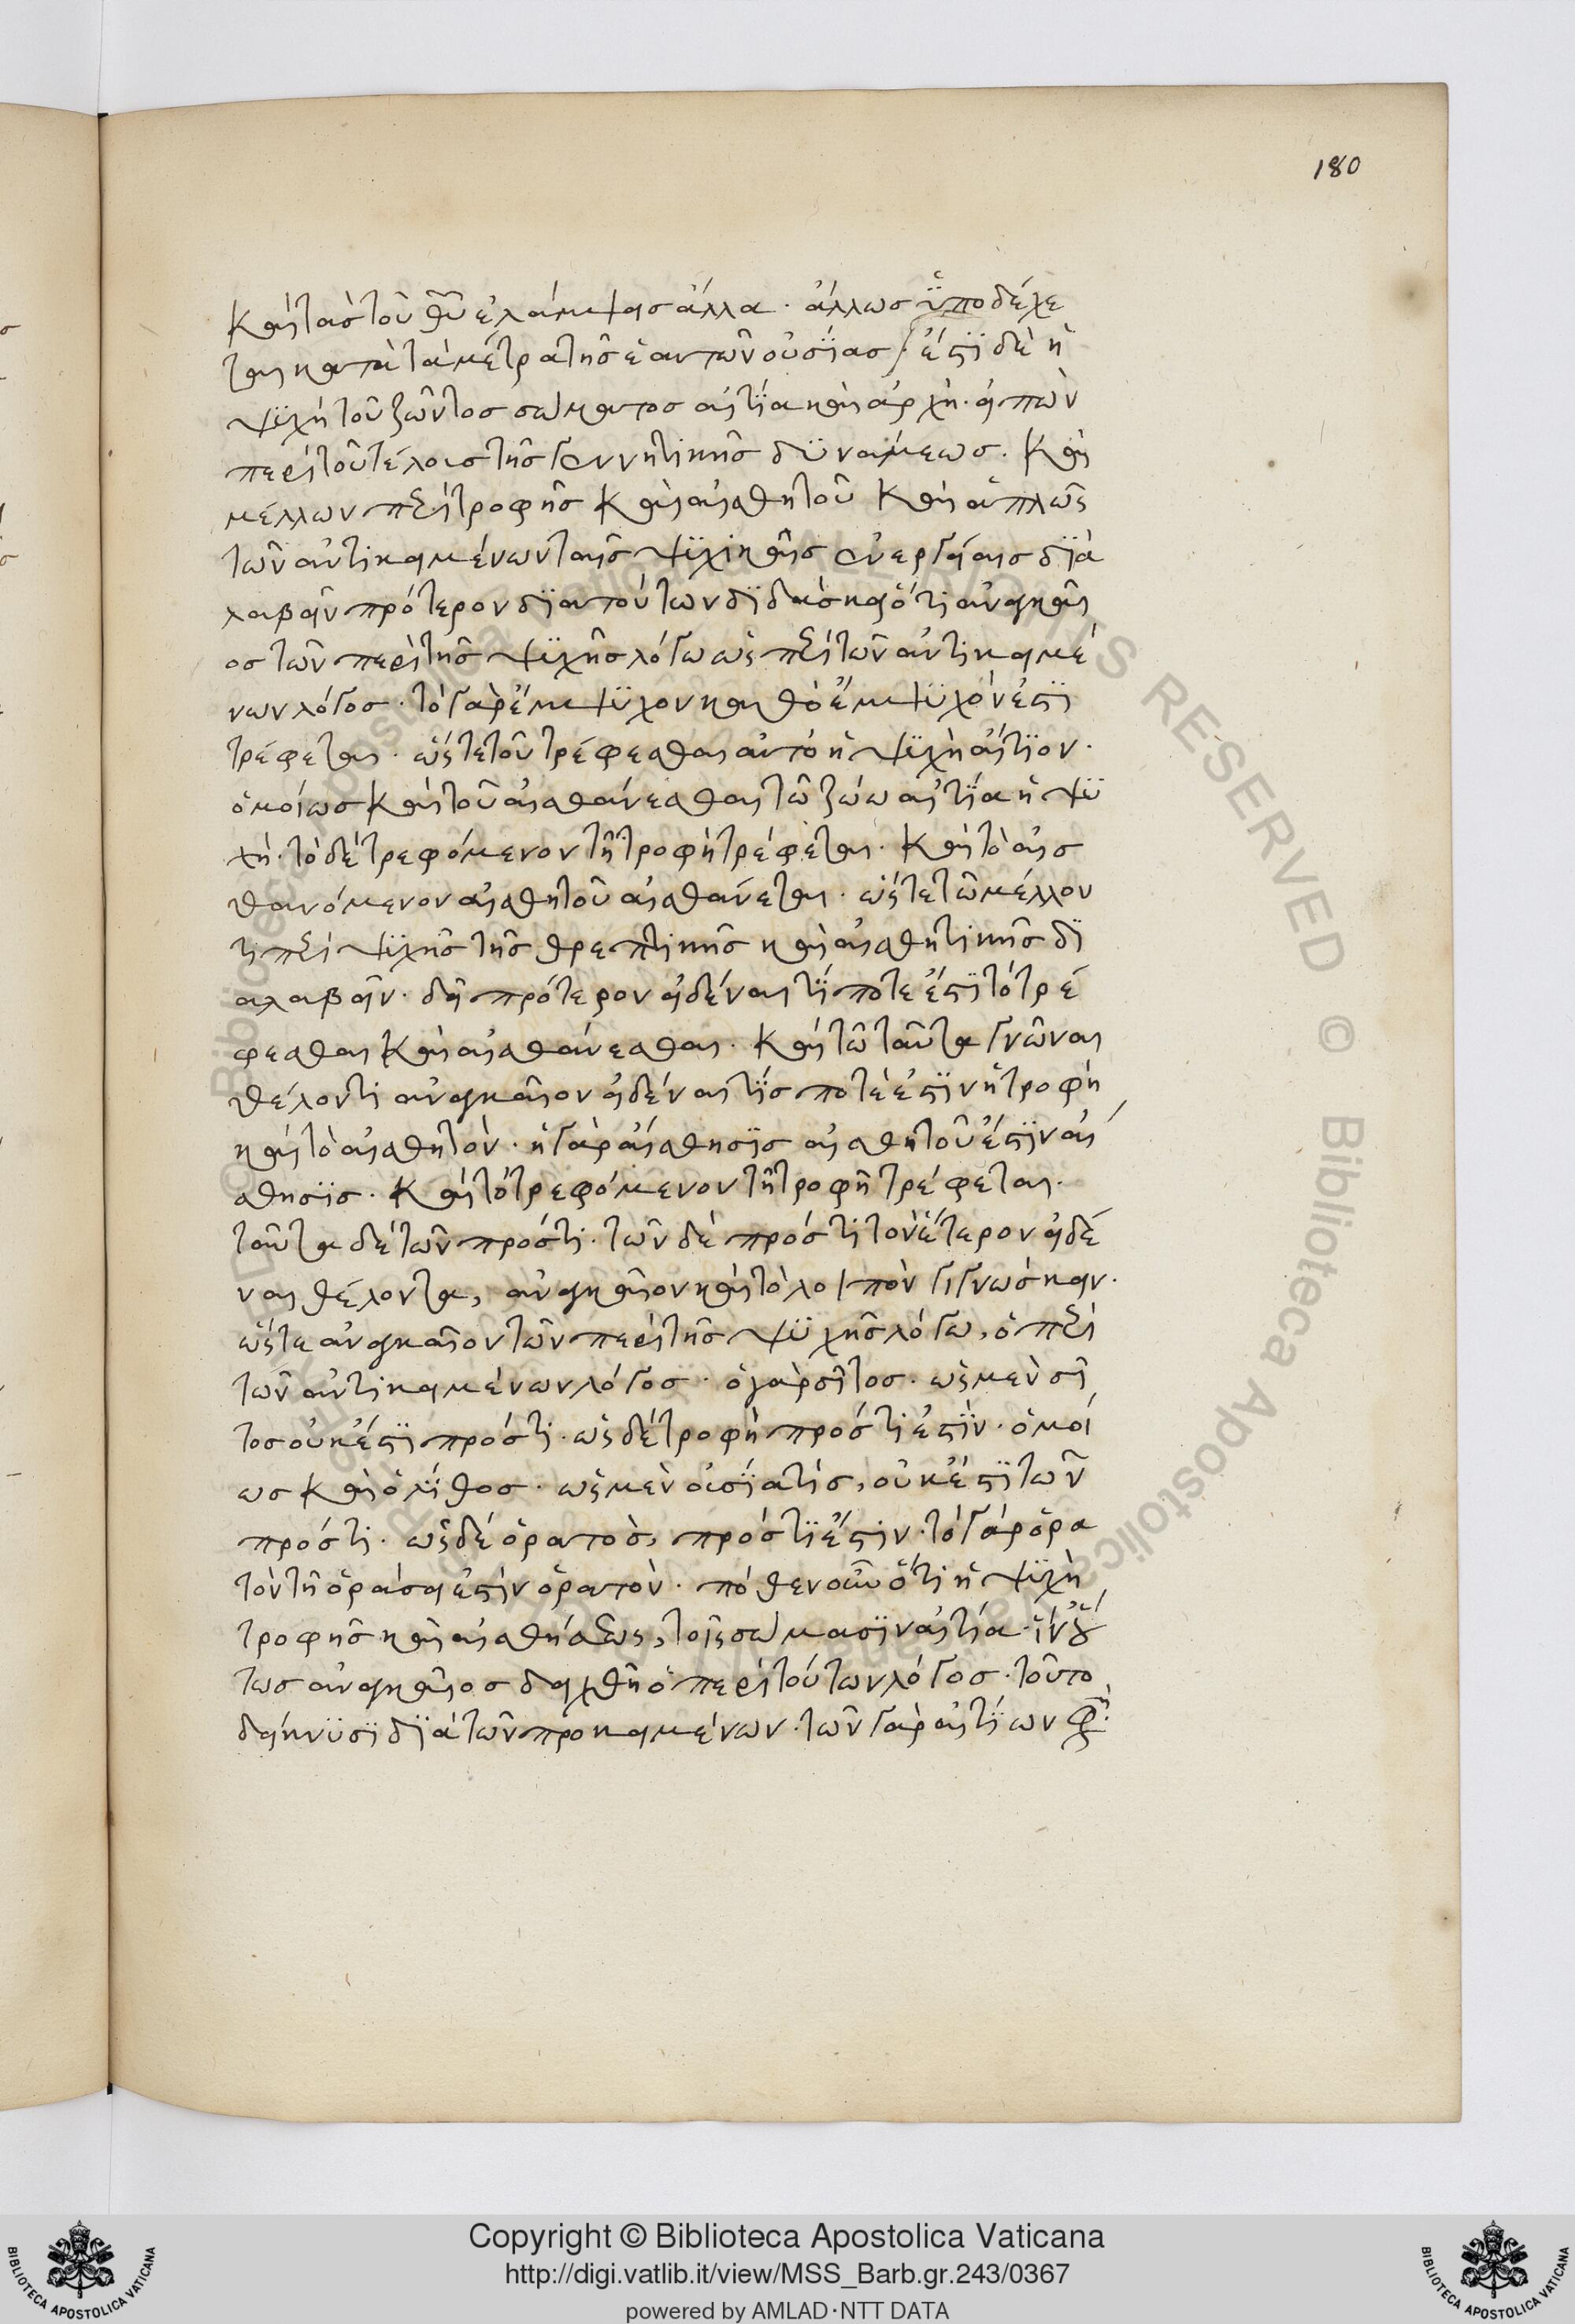 180
καὶ τὰς τοῦ θῦ ἐλάμψας ἄλλα · ἄλλως ὑποδέχε
ται κατὰ τὰ μέτρα τῆς ἑαυτῶν οὐσίας · ἔστι δὲ ἡ
ψυχὴ τοῦ ζῶντος σώματος αἰτία καὶ ἀρχή · εἰπὼν
περὶ τοῦ τέλους τῆς γεννητικῆς δυνάμεως · καὶ
μέλλων περὶ τροφῆς καὶ αἰσθητοῦ καὶ ἁπλῶς
τῶν ἀντικειμένων ταῖς ψυχικαῖς ἐνεργείαις δια
λαβεῖν πρότερον δια τούτων διδάσκει ὅτι ἀναγκαῖ
ος τῶν περὶ τῆς ψυχῆς λόγω ὡς περὶ τῶν ἀντικειμέ
νων λόγος · τὸ γὰρ ἔμψυχον καθὸ ἔμψυχόν ἐστι
τρέφεται · ὥστε τοῦ τρέφεσθαι αὐτὸ ἡ ψυχὴ αἴτιον ·
ὁμοίως καὶ τοῦ αἰσθάνεσθαι τῶ ζώω αἰτία ἡ ψυ
χή · τὸ δὲ τρεφόμενον τῆ τροφῆ τρέφεται · καὶ τὸ αἰσ
θανόμενον αἰσθητοῦ αἰσθάνεται · ὥστε τῶ μέλλον
τι περὶ ψυχῆς τῆς θρεπτικῆς καὶ αἰσθητικῆς δι
αλαβεῖν · δεῖ πρότερον εἰδέναι τί ποτε ἐστὶ τὸ τρέ
φεσθαι καὶ αἰσθάνεσθαι · καὶ τῶ ταῦτα γνῶναι
θέλοντι ἀναγκαῖον εἰδέναι τίς ποτέ ἐστιν ἡ τροφὴ
καὶ τὸ αἰσθητόν · ἡ γὰρ αἴσθησις αἰσθητοῦ ἐστιν αἴ
σθησις · καὶ τὸ τρεφόμενον τῆ τροφῆ τρέφεται ·
ταῦτα δὲ τῶν πρός τι · τῶν δὲ πρός τι τὸν ἕτερον εἰδέ
ναι θέλοντα, ἀναγκαῖον καὶ τὸ λοιπὸν γιγνώσκειν ·
ὥστε ἀναγκαῖον τῶν περὶ τῆς ψυχῆς λόγω, ὁ περὶ
τῶν ἀντικειμένων λόγος · ὁ γὰρ σῖτος · ὡς μὲν σῖ
τος οὐκ ἔστι πρός τι · ὡς δὲ τροφὴ πρός τι ἐστίν · ὁμοί
ως καὶ ὁ λίθος · ὡς μὲν οὐσία τίς, οὐκ ἔστι τῶν
πρός τι · ὡς δὲ ὁρατός, πρός τι ἐστίν · τὸ γὰρ ὁρα
τὸν τῆ ὁράσει ἐστὶν ὁρατόν · πόθεν οὖν ὅτι ἡ ψυχὴ
τροφῆς καὶ αἰσθήσεως, τοῖς σώμασιν αἰτία · ἵν οὕ
τως ἀναγκαῖος δειχθῆ ὁ περὶ τούτων λόγος · τοῦτο
δείκνυσι διὰ τῶν προκειμένων · τῶν γὰρ αἰτίων
Copyright © Biblioteca Apostolica Vaticana
http://digi.vatlib.it/view/MSS_Barb.gr.243/0367
powered by AMLAD·NTT DATA